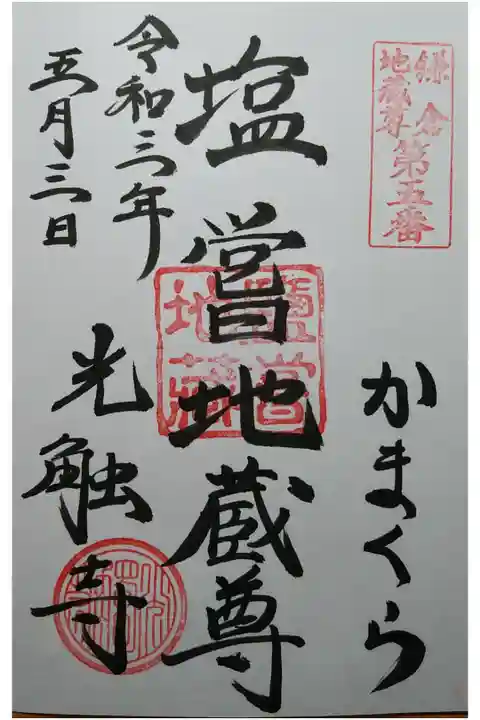 鎌倉
地蔵尊第五番
かまくら
塩嘗地蔵尊
塩嘗
地蔵
令和三年
五月三日
光触寺